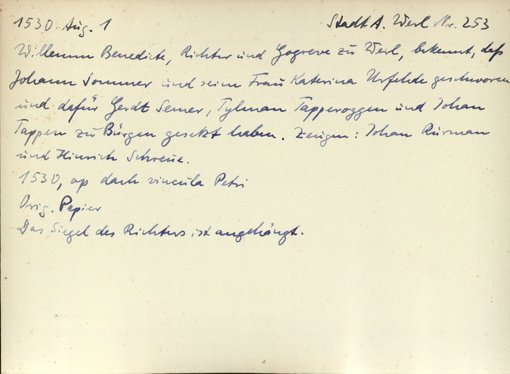 1530. Aug. 1 Stadt A. Werl Nr. 253
Willemm Benedicte, Richter und Gogreve zu Werl, bekennt, daß
Johann Sommer und seine Frau Katerina Urfehde geschworen
und dafür Gerdt Semer, Tylman Tapperoggen und Johan
Tappen zu Bürgen gesetzt haben. Zeugen: Johan Rurman
und Hinrich Schreue.
1530, op dach vincula Petri
Orig. Papier
Das Siegel des Richters ist angehängt.